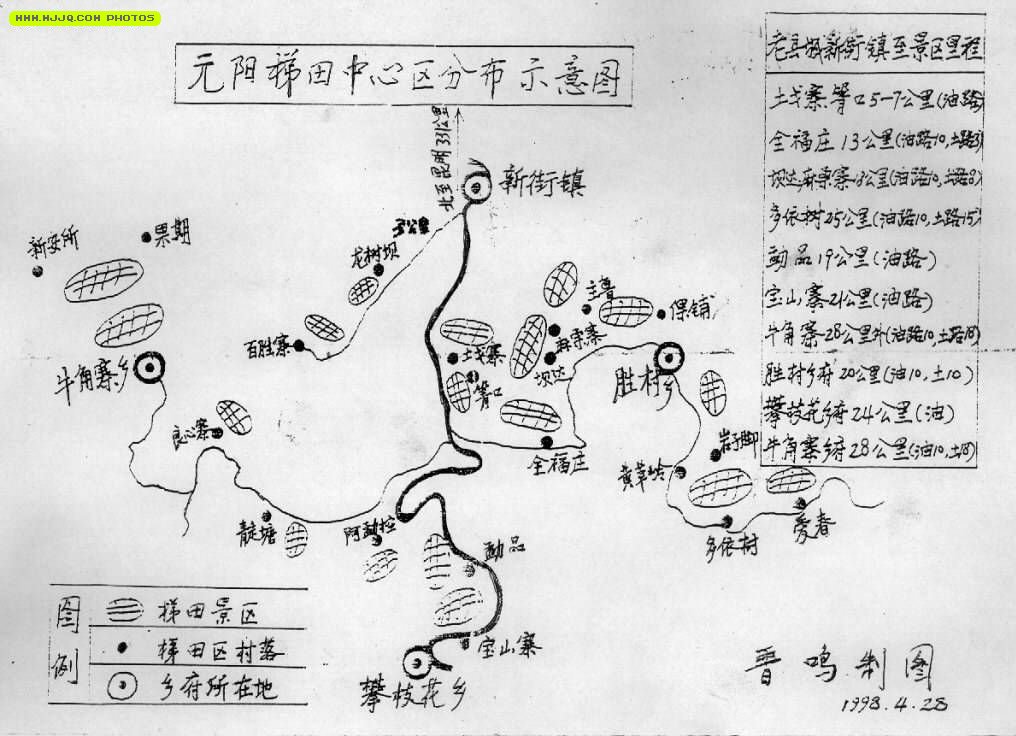 WWW.HJJQ.COM PHOTOS
元阳梯田中心区分布示意图
老县城新街镇至景区里程
土戈寨箐口5-7公里(油路)
全福庄13公里(油路10,土路3)
坝达麻栗寨18公里(油路10,土路8)
多依树25公里(油路10,土路15)
勐品19公里(油路)
宝山寨21公里(油路)
牛角寨28公里外(油路10,土路18)
胜村乡府20公里(油10,土10)
攀枝花乡府24公里(油)
牛角寨乡府28公里(油10,土18)
北至昆明331公里
新街镇
新安所
果期
龙树坝
主鲁
保铺
百胜寨
土戈寨
麻栗寨
坝达
箐口
牛角寨乡
胜村乡
良心寨
全福庄
岩子脚
黄草岭
龍塘
阿勐控
勐品
多依村
爱春
宝山寨
攀枝花乡
图例
梯田景区
梯田区村落
乡府所在地
晋鸣制图
1998.4.28